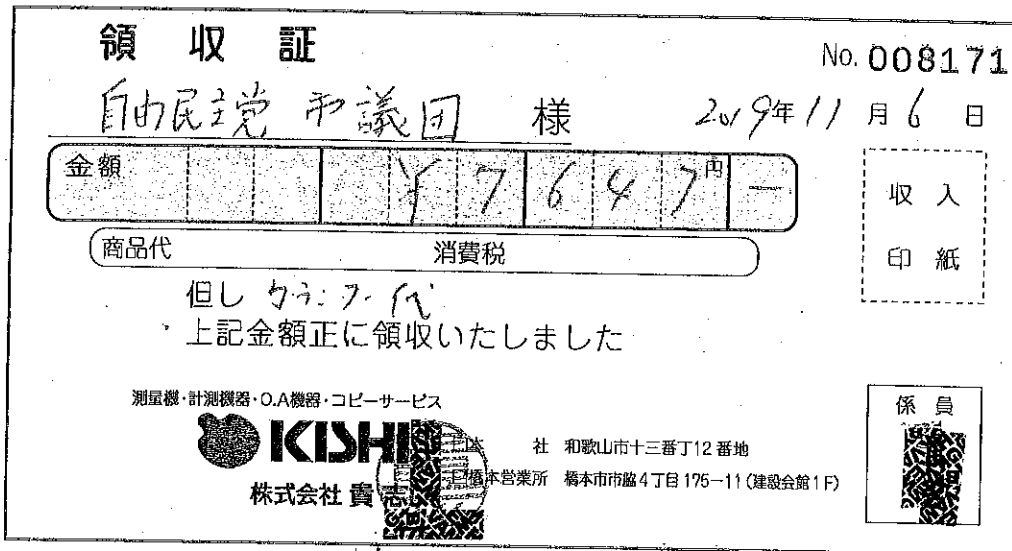 領収証
No. 008171
自由民主党 市議団 様
2019年11月6日
金額 ¥7647円 -
収入
印紙
商品代 消費税
但し カラーコピー代
上記金額正に領収いたしました
測量機・計測機器・O.A機器・コピーサービス
KISHI
株式会社 貴志
本社 和歌山市十三番丁12番地
橋本営業所 橋本市市脇4丁目175-11(建設会館1F)
係員